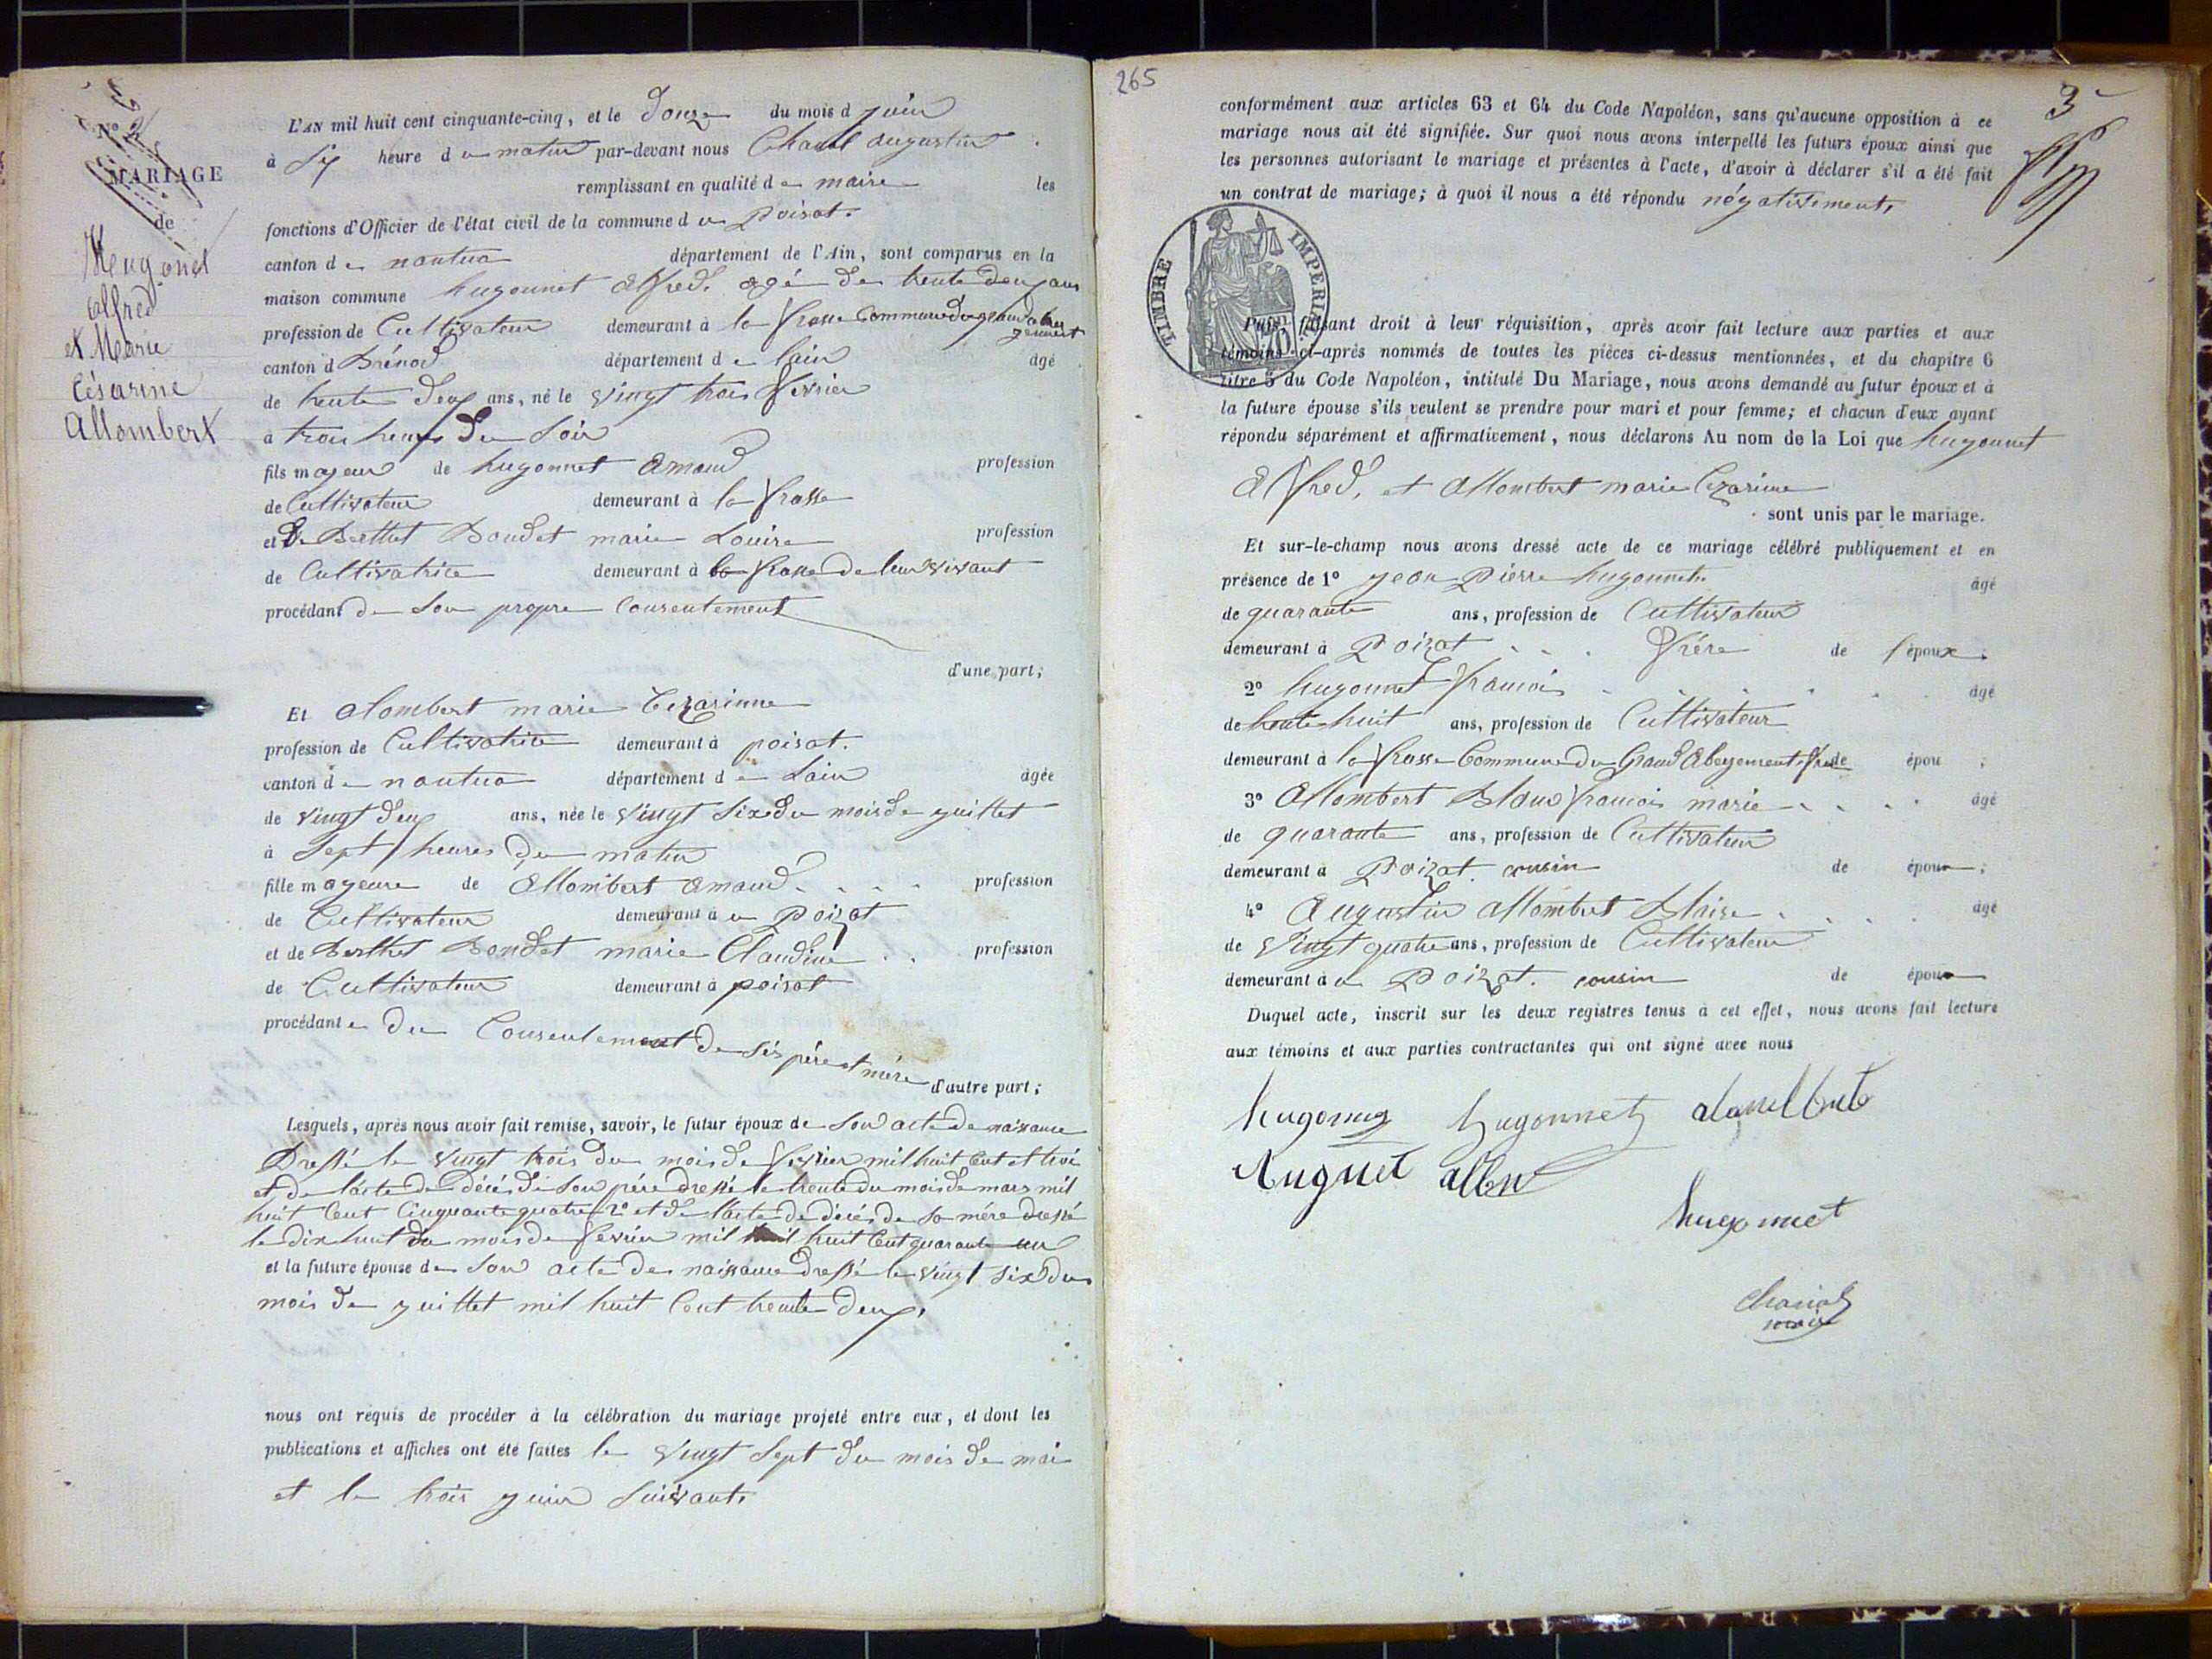 N° 2
MARIAGE
de
Hugonet
alfred
et Marie
Césarine
Allombert
L'AN mil huit cent cinquante-cinq, et le Douze du mois d juin
à Six heure d u matin par-devant nous augustin
remplissant en qualité d e maire les
fonctions d'Officier de l'état civil de la commune d u poisat.
canton d e nantua département de l'Ain, sont comparus en la
maison commune hugonnet Alfred. agé de trente deux ans
profession de Cultivateur demeurant à la frasse Commune du grand
canton d Brénod département d e lain âgé
de trente deux ans, né le vingt trois fevrier
à trois heures du soir
fils majeur de hugonnet Amand profession
de Cultivateur demeurant à la frasse
et De Berthet Bondet marie Louise profession
de Cultivatrice demeurant à la frasse de leur vivant
procédant de son propre Consentement
d'une part;
Et alombert marie Cezarinne
profession de Cultivatrice demeurant à poisat.
canton d e nantua département d e Lain âgée
de vingt deux ans, née le vingt Six du mois de juillet
à Sept heures du matin
fille majeure de Allombert amand profession
de Cultivateur demeurant à u Poizat
et de Berthet Bondet marie Claudine profession
de Cultivateur demeurant à poisat
procédant e du Consentement de ses père et mère
d'autre part;
Lesquels, après nous avoir fait remise, savoir, le futur époux de son acte de naissance
Dressé le vingt trois du mois de fevrier mil huit Cent et troi
et de l'acte de décés de son pére dressé le trente du mois de mars mil
huit Cent Cinquante quatre 2° et de l'acte de décés de sa mére dressé
le dix huit du mois de fevrier mil huit Cent quarante un
et la future épouse de son acte de naissance dressé le vingt six du
mois de juillet mil huit Cent trente deux.
nous ont requis de procéder à la célébration du mariage projeté entre eux, et dont les
publications et affiches ont été faites le vingt sept du mois de mai
et le trois juin suivant.
265
3
conformément aux articles 63 et 64 du Code Napoléon, sans qu'aucune opposition à ce
mariage nous ait été signifiée. Sur quoi nous avons interpellé les futurs époux ainsi que
les personnes autorisant le mariage et présentes à l'acte, d'avoir à déclarer s'il a été fait
un contrat de mariage; à quoi il nous a été répondu négativement,
TIMBRE IMPÉRIAL
Puis, faisant droit à leur réquisition, après avoir fait lecture aux parties et aux
témoins ci-après nommés de toutes les pièces ci-dessus mentionnées, et du chapitre 6
titre 5 du Code Napoléon, intitulé Du Mariage, nous avons demandé au futur époux et à
la future épouse s'ils veulent se prendre pour mari et pour femme; et chacun d'eux ayant
répondu séparément et affirmativement, nous déclarons Au nom de la Loi que hugonnet
Alfred, et Allombert marie Cezarinne
sont unis par le mariage.
Et sur-le-champ nous avons dressé acte de ce mariage célébré publiquement et en
présence de 1° jean Pierre hugonnet. âgé
de quarante ans, profession de Cultivateur
demeurant à Poizat frére de l'époux.
2° hugonnet francois âgé
de trente huit ans, profession de Cultivateur
demeurant à la frasse Commune du Grand Abergement de épou ;
3° Allombert Blanc francois marie âgé
de quarante ans, profession de Cultivateur
demeurant à Poizat. cousin de épouse ;
4° Augustin Allombert Blaise âgé
de vingt quatre ans, profession de Cultivateur
demeurant à u Poizat. cousin de épouse
Duquel acte, inscrit sur les deux registres tenus à cet effet, nous avons fait lecture
aux témoins et aux parties contractantes qui ont signé avec nous
hugonnet
hugonnet